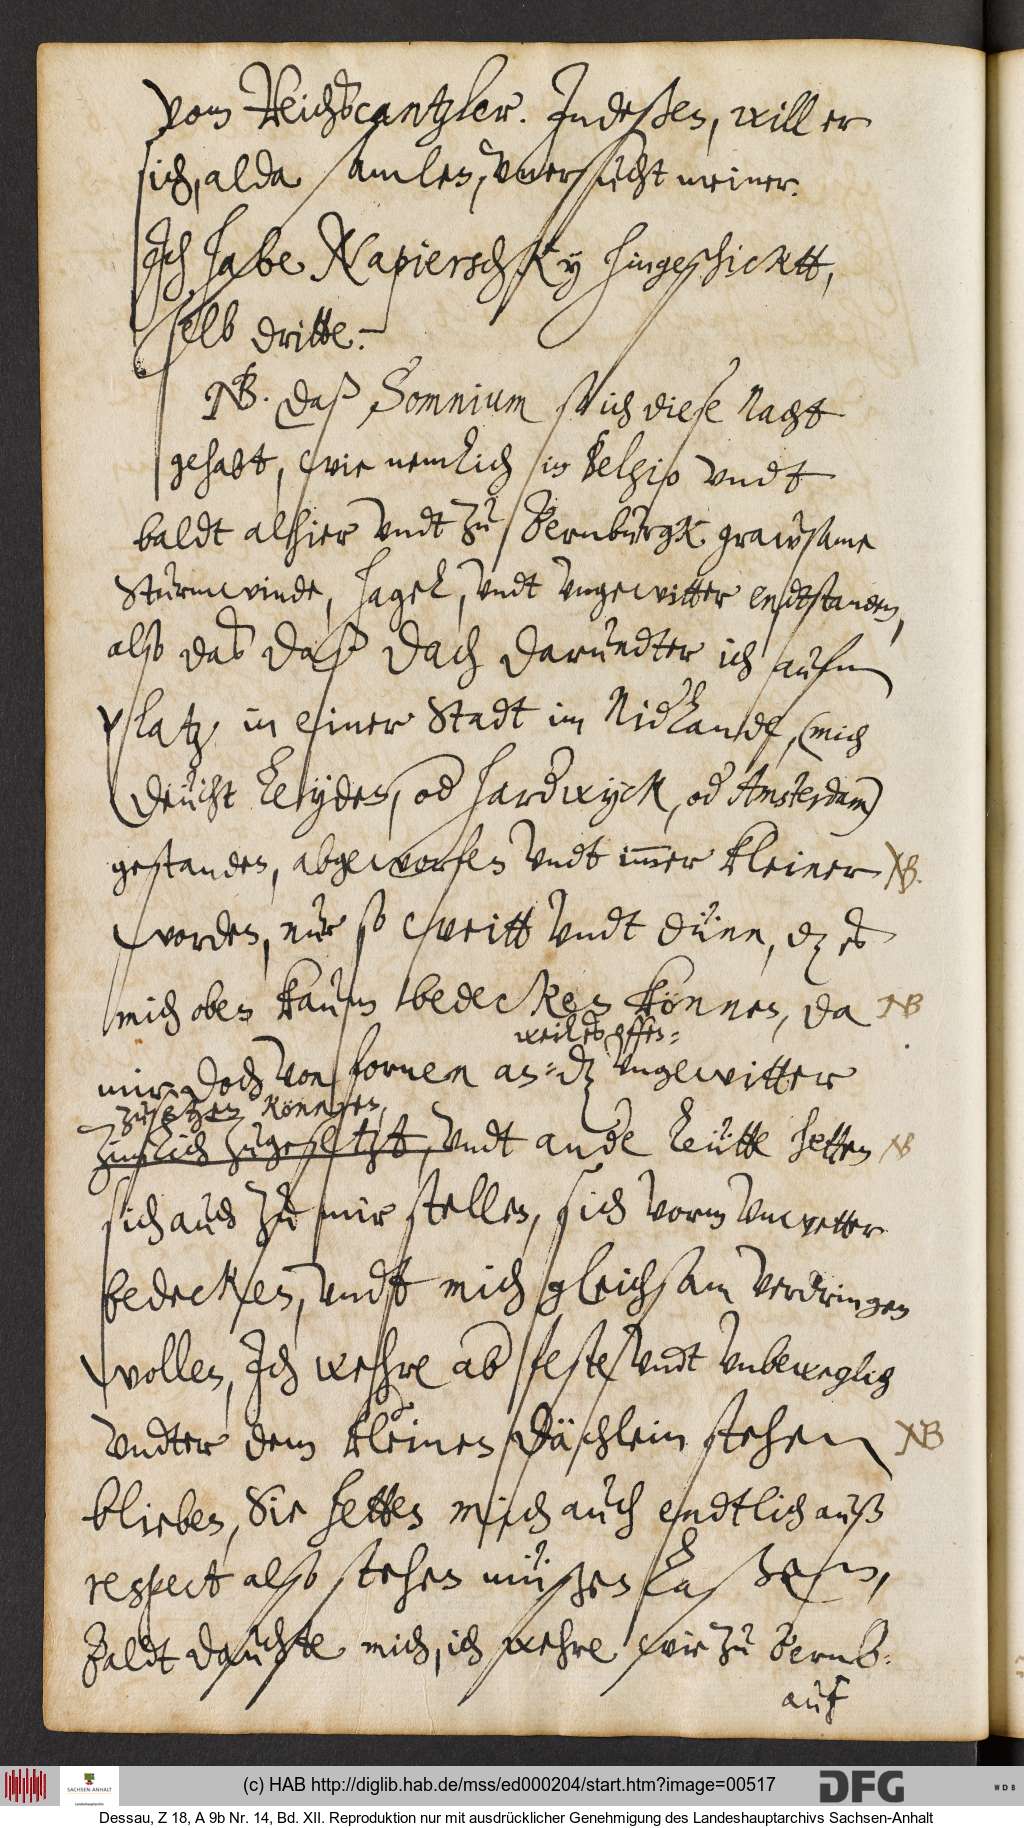 vom Reichscantzler. Indeßen, will er
sich, alda samlen, vnersucht meiner.
Ich habe Napierschky hingeschicktt,
selb dritte. –
NB. daß Somnium so ich diese Nacht
gehabt, wie nemlich in Belgio vndt
baldt alhier vndt zu Bernburgk grawsame
Sturmwinde, hagel, vndt vngewitter endtstanden,
also das daß dach darundter ich aufm
platz in einer Stadt im Nidlande, (mich
deücht Leyden, od hardwyck, od Amsterdam)
gestanden, abgeworfen vndt immer kleiner NB.
worden, nur so weitt vndt dünn, dz es
mich oben kaum bedecken können, da NB
weil es offen-
mir doch von fornen an- dz vngewitter
zusetzen können,
zimlich zugesetzt, vndt ande leütte hetten NB
sich auch zu mir stellen, sich vorm vnwetter
bedecken, vndt mich gleichsam verdringen
wollen, Ich wehre ab feste vndt vnbeweglig
vndter dem kleinen Dächlein stehen NB
blieben, Sie hetten mich auch endtlich auß
respect also stehen müßen laßen,
Baldt dauchte mich, ich wehre wie zu Bernb:
auf
(c) HAB http://diglib.hab.de/mss/ed000204/start.htm?image=00517
SACHSEN-ANHALT
DFG
WDB
Dessau, Z 18, A 9b Nr. 14, Bd. XII. Reproduktion nur mit ausdrücklicher Genehmigung des Landeshauptarchivs Sachsen-Anhalt